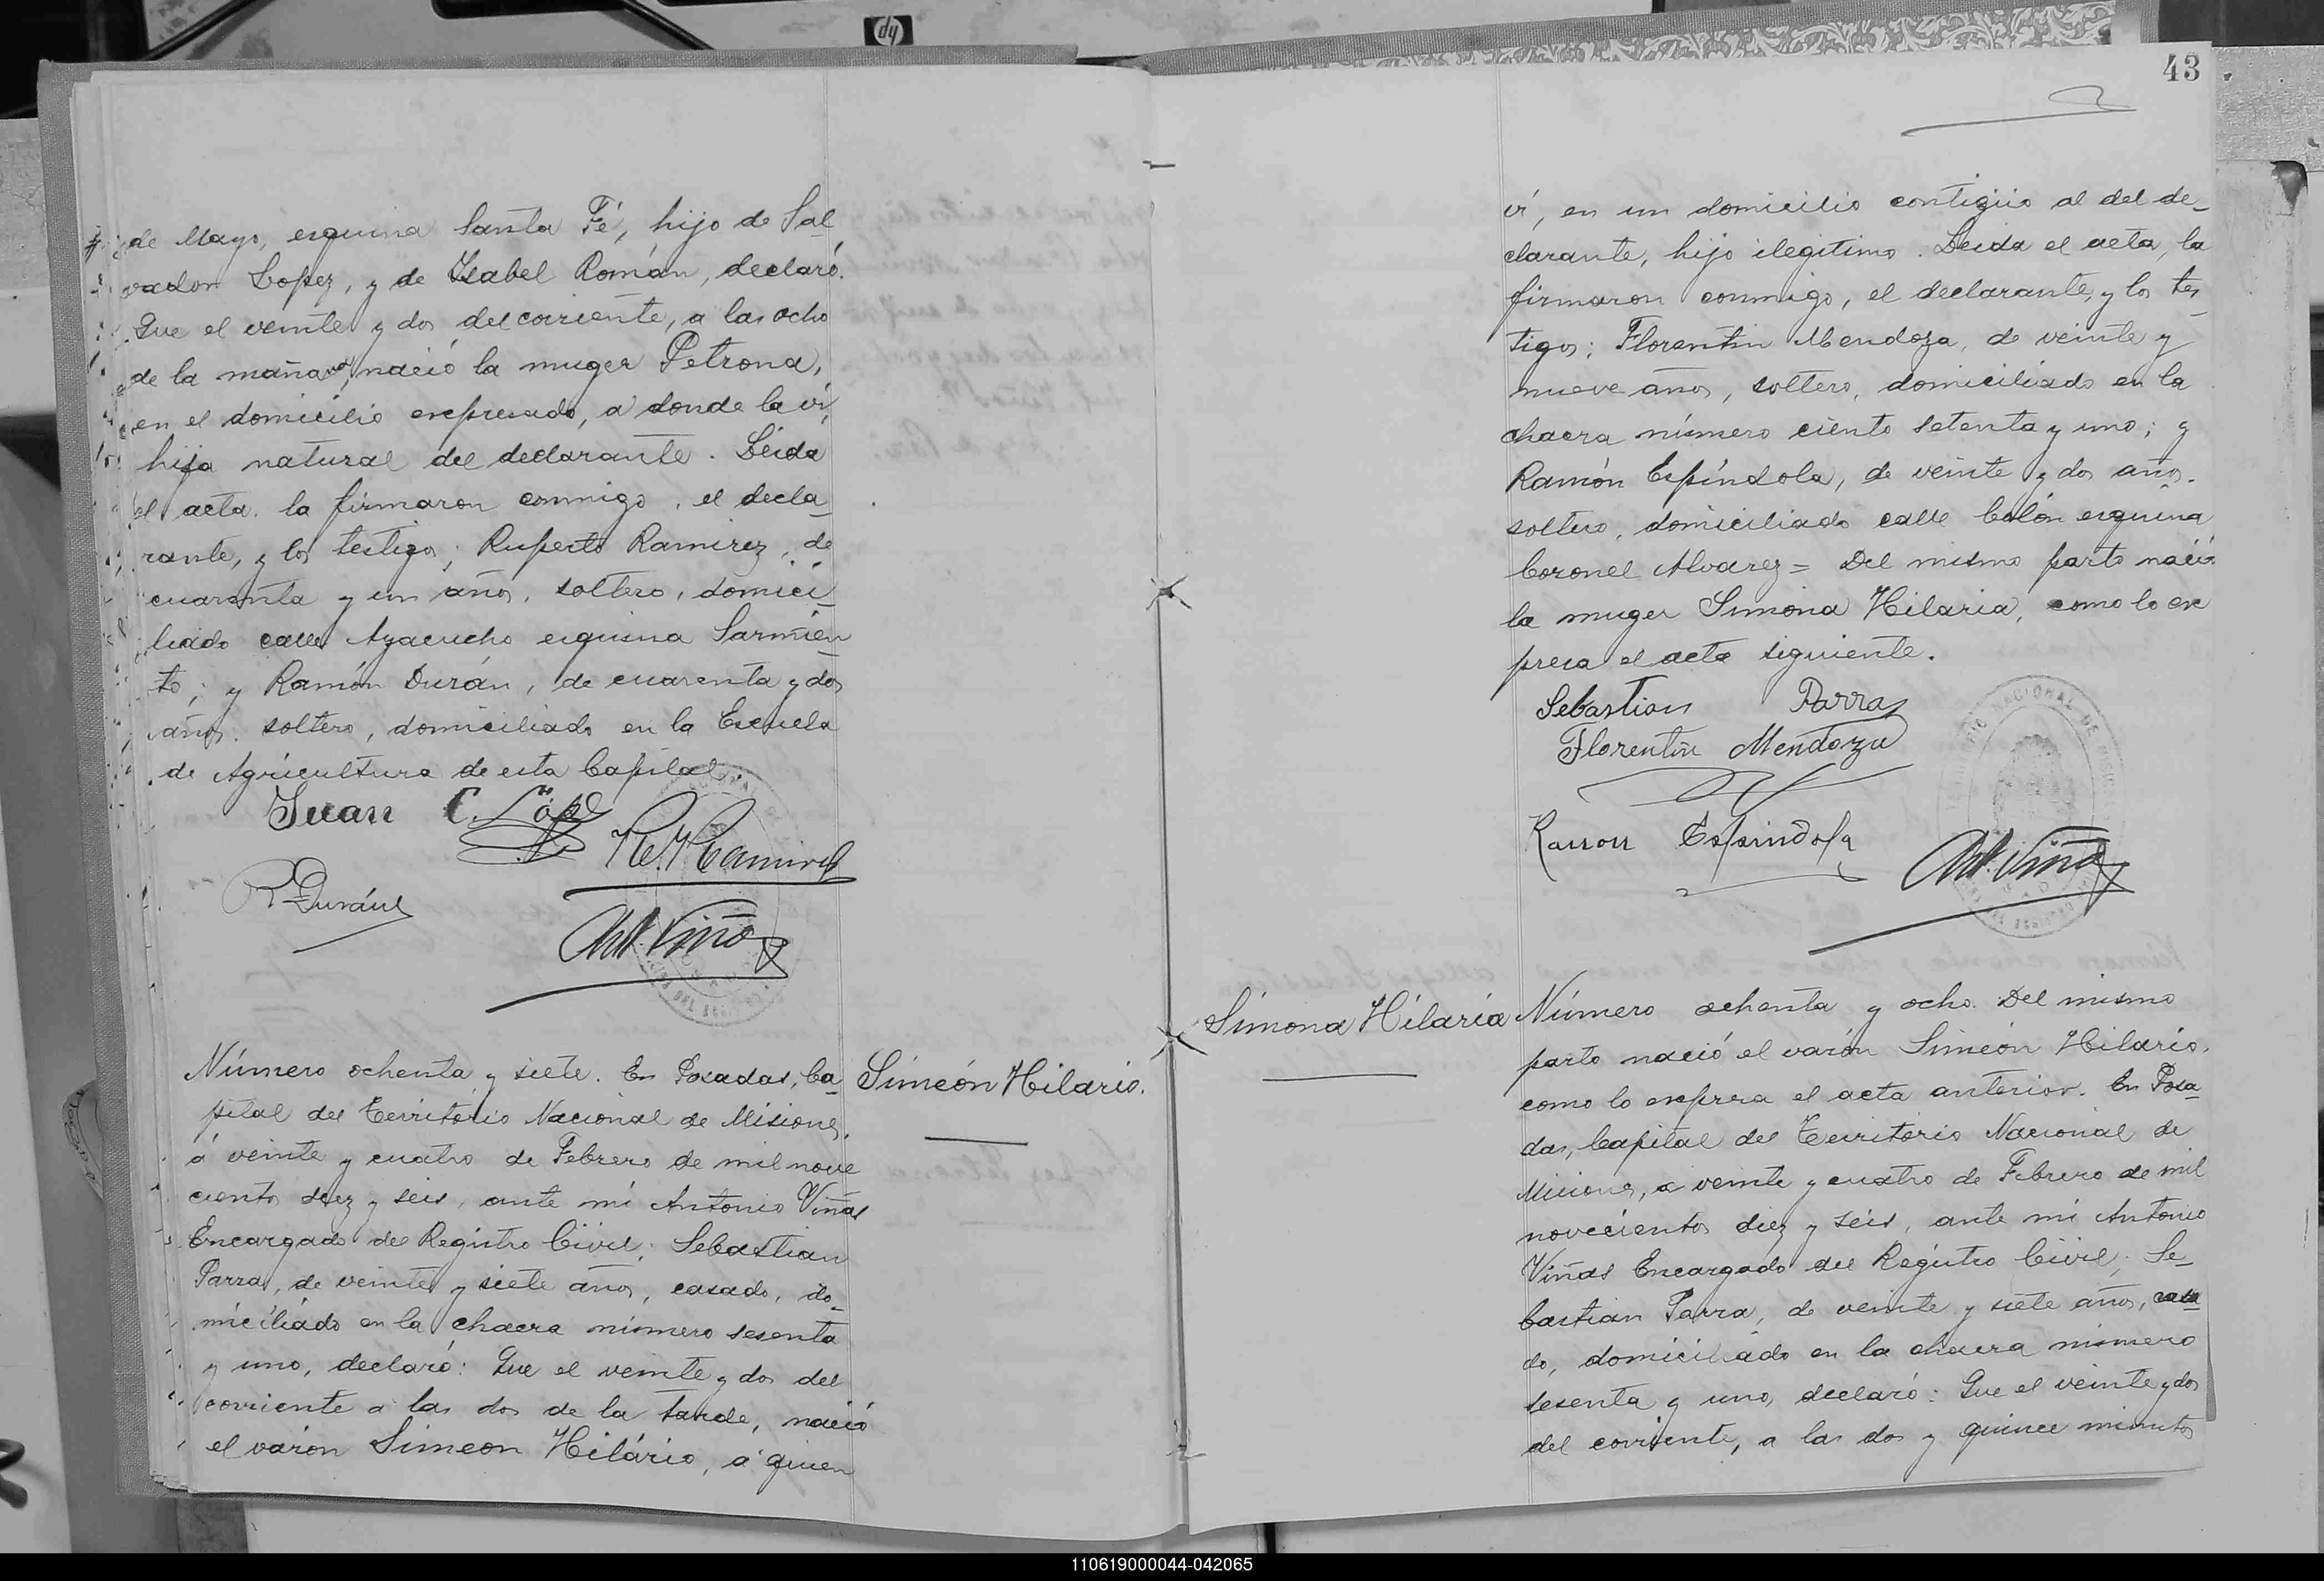 de Mayo, esquina Santa Fé, hijo de Sal_
vador Lopez, y de Isabel Román, declaró.
Que el veinte y dos del corriente, a las ocho
de la mañana, nació la muger Petrona,
en el domicilio expresado, a donde la ví,
hija natural del declarante. Leida
el acta. la firmaron conmigo, el decla_
rante, y los testigos; Ruperto Ramirez, de
cuarenta y un años, soltero, domici_
liado calle Ayacucho esquina Sarmien_
to; y Ramón Durán, de cuarenta y dos
años. soltero, domiciliado en la Escuela
de Agricultura de esta Capital.
Juan C. López
R. Ramirez
R Durán
Ant. Viñas
Número ochenta y siete. En Posadas, Ca_
pital del Territorio Nacional de Misiones,
á veinte y cuatro de Febrero de mil nove
cientos diez y seis, ante mí Antonio Viñas
Encargado del Registro Civil; Sebastian
Parra, de veinte y siete años, casado, do_
miciliado en la chacra número sesenta
y uno, declaró: Que el veinte y dos del
corriente a las dos de la tarde, nació
el varón Simeon Hilário, a quien
Simeón Hilario.
43
ví, en un domicilio contiguo al del de_
clarante, hijo ilegitimo. Leida el acta, la
firmaron conmigo, el declarante, y los tes_
tigos; Florentin Mendoza, de veinte y
nueve años, soltero, domiciliado en la
chacra número ciento setenta y uno; y
Ramón Espíndola, de veinte y dos años.
soltero, domiciliado calle Colón esquina
Coronel Alvarez = Del mismo parto nació
la muger Simona Hilaria, como lo ex
presa el acta siguiente.
Sebastian Parra
Florentin Mendoza
Ramon Espindola
Ant. Viñas
Simona Hilaria
Número ochenta y ocho. Del mismo
parto nació el varón Simeón Hilario,
como lo expresa el acta anterior. En Posa_
das, Capital del Territorio Nacional de
Misiones, a veinte y cuatro de Febrero de mil
novecientos diez y seis, ante mi Antonio
Viñas Encargado del Registro Civil; Se_
bastian Parra, de veinte y siete años, casa_
do, domiciliado en la chacra número
sesenta y uno, declaró: Que el veinte y dos
del corriente, a las dos y quince minutos
110619000044-042065